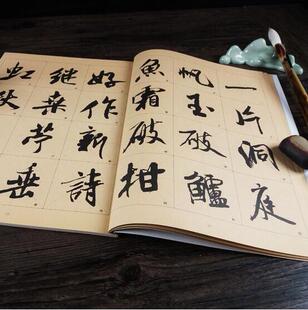 一片洞庭
帆玉破鱸
魚霜破柑
好作新詩
継桑苧垂
虹秋